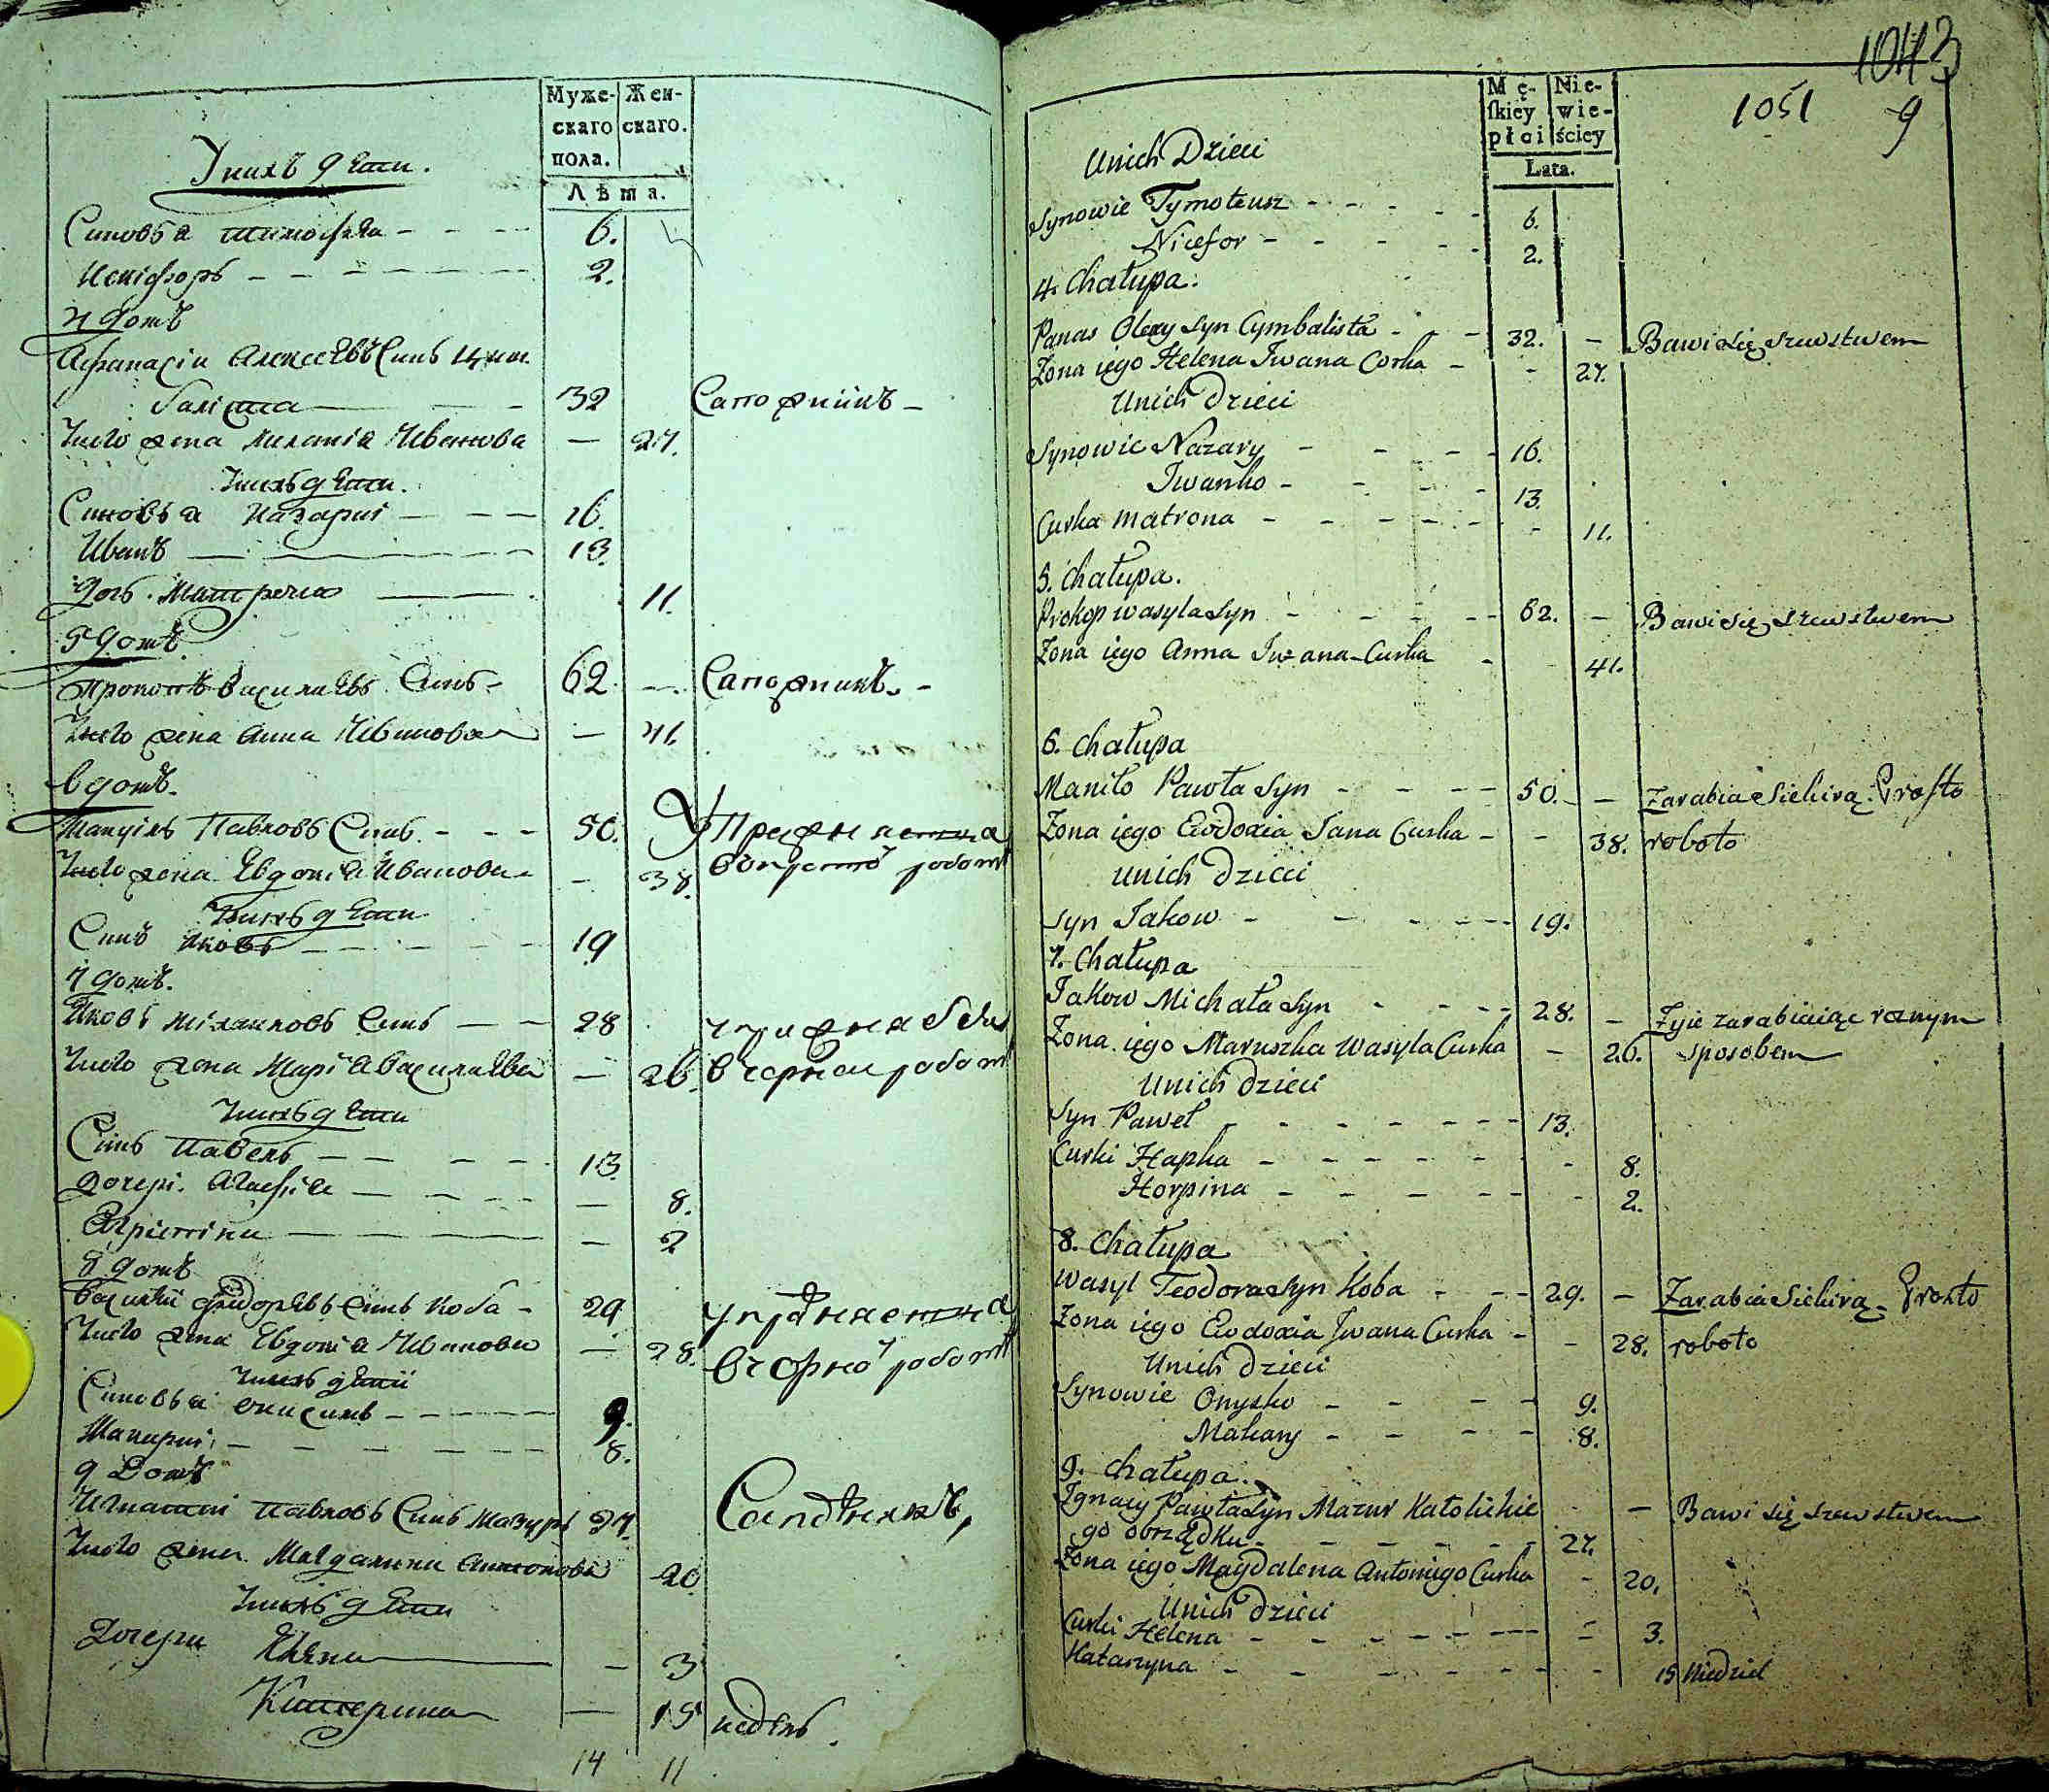 Муже-
скаго
пола.
Жен-
скаго.
Лѣта.
У нихъ дѣти.
Синовья Тимофѣй - - - 6.
Никифоръ - - - 2.
4 домъ
Афанасій Алексѣевъ Синъ Цим
балиста - 32 Сапожникъ -
У него жена Меланія Иванова - 27.
У нихъ дѣти.
Синовья Назарий - - - 16.
Иванъ - 13.
Дочь Матрена - 11.
5 домъ.
Прокопъ Василаевъ Синъ - 62. - Сапожникъ. -
У него жена Анна Иванова - 41.
6 домъ.
Мануилъ Павловъ Синъ. - - - 50. Упражняетца
У него жена Евдокія Иванова - 38. работ
У нихъ дѣти
Синъ Яковъ - - - 19
7 домъ.
Яковъ Михаиловъ Синъ - - 28
У него жена Марія Василаева - 26. в черной работ
У нихъ дѣти
Синъ Павелъ - - - - 13.
Дочери. Агафія - - - - 8.
Агрипина - - 2
8 домъ
Василий Фіодоровъ Синъ Коба - 29 упражняетца
У него жена Евдокія Иванова - 28. в чорной работ
У нихъ дѣти
Синовья Онисимъ - - - - 9.
Макарий - - - - - 8.
9 Домъ
Игнатий Павловъ Синъ Мазуръ 27. Сапожникъ,
У него жена Магдалина Антонова 20.
У нихъ дѣти
Дочери Елена - 3
Катерина - 15 недель.
14 11
1043
Mę-
skiey
płci
Nie-
wie-
ściey
Lata.
1051 9
Unich Dzieci
Synowie Tymoteusz - - - - - 6.
Nicefor - - - - - 2.
4. Chałupa.
Panas Olexy Syn Cymbalista - - - 32. - Bawi się szewstwem
Zona iego Helena Iwana Corka - - 27.
Unich Dzieci
Synowie Nazary - - - - 16.
Iwanko - - - - 13.
Curka Matrona - - - - - - 11.
5. Chałupa.
Prokop Wasyla Syn - - - - - 62. - Bawi się szewstwem
Zona iego Anna Iwana Curka - 41.
6. Chałupa
Maniło Pawła Syn - - - - 50. - - Zarabia Siekirą. Prosto
Zona iego Eudoxia Iana Curka - - 38. roboto
Unich Dzieci
Syn Iakow - - - - - 19.
7. Chałupa
Iakow Michała Syn - - - - 28. - Zyie zarabiaiąc roznym
Zona iego Maruszka Wasyla Curka - 26. sposobem
Unich Dzieci
Syn Paweł - - - - - - - 13.
Curki Hapka - - - - - - - 8.
Horpina - - - - - - 2.
8. Chałupa
Wasyl Teodora Syn Koba - - - 29. - Zarabia Siekirą - Prosto
Zona iego Eudoxia Iwana Curka - - 28. roboto
Unich Dzieci
Synowie Onysko - - - - 9.
Makary - - - - 8.
9. Chałupa.
Ignacy Pawła Syn Mazur Katolickie - - Bawi się szewstwem
go obrzędku - - - - - - 27.
Zona iego Magdalena Antoniego Curka - 20.
Unich Dzieci
Curki Helena - - - - - --- - 3.
Katarzyna - - - - - - - 15 Niedziel